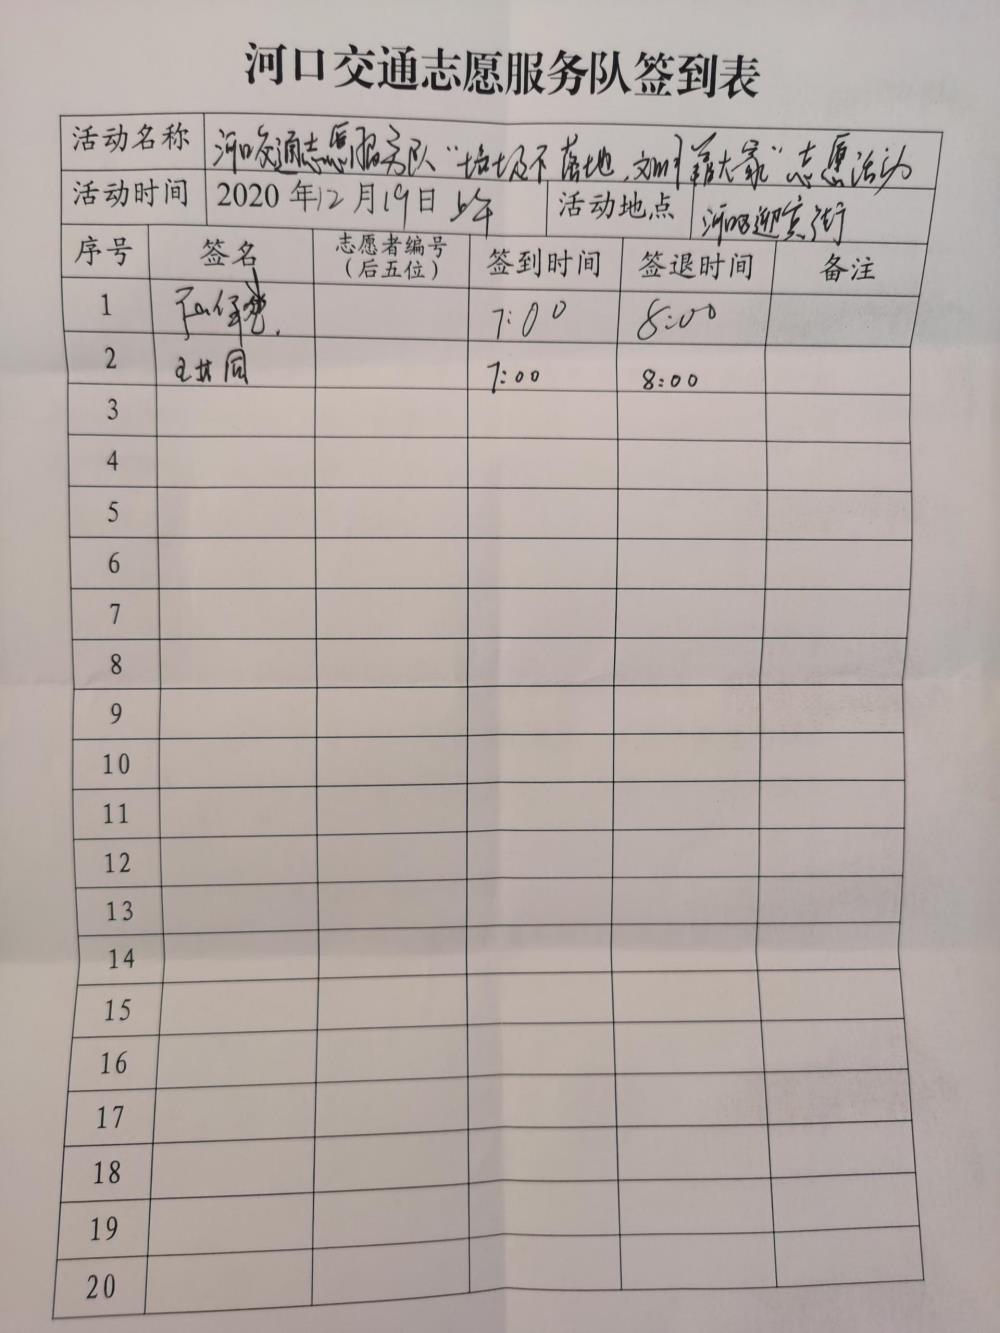 河口交通志愿服务队签到表
活动名称 河口交通志愿服务队"垃圾不落地，文明靠大家"志愿活动
活动时间 2020年12月19日上午 活动地点 河口迎宾街
序号 签名 志愿者编号（后五位） 签到时间 签退时间 备注
1 7:00 8:00
2 王共同 7:00 8:00
3
4
5
6
7
8
9
10
11
12
13
14
15
16
17
18
19
20